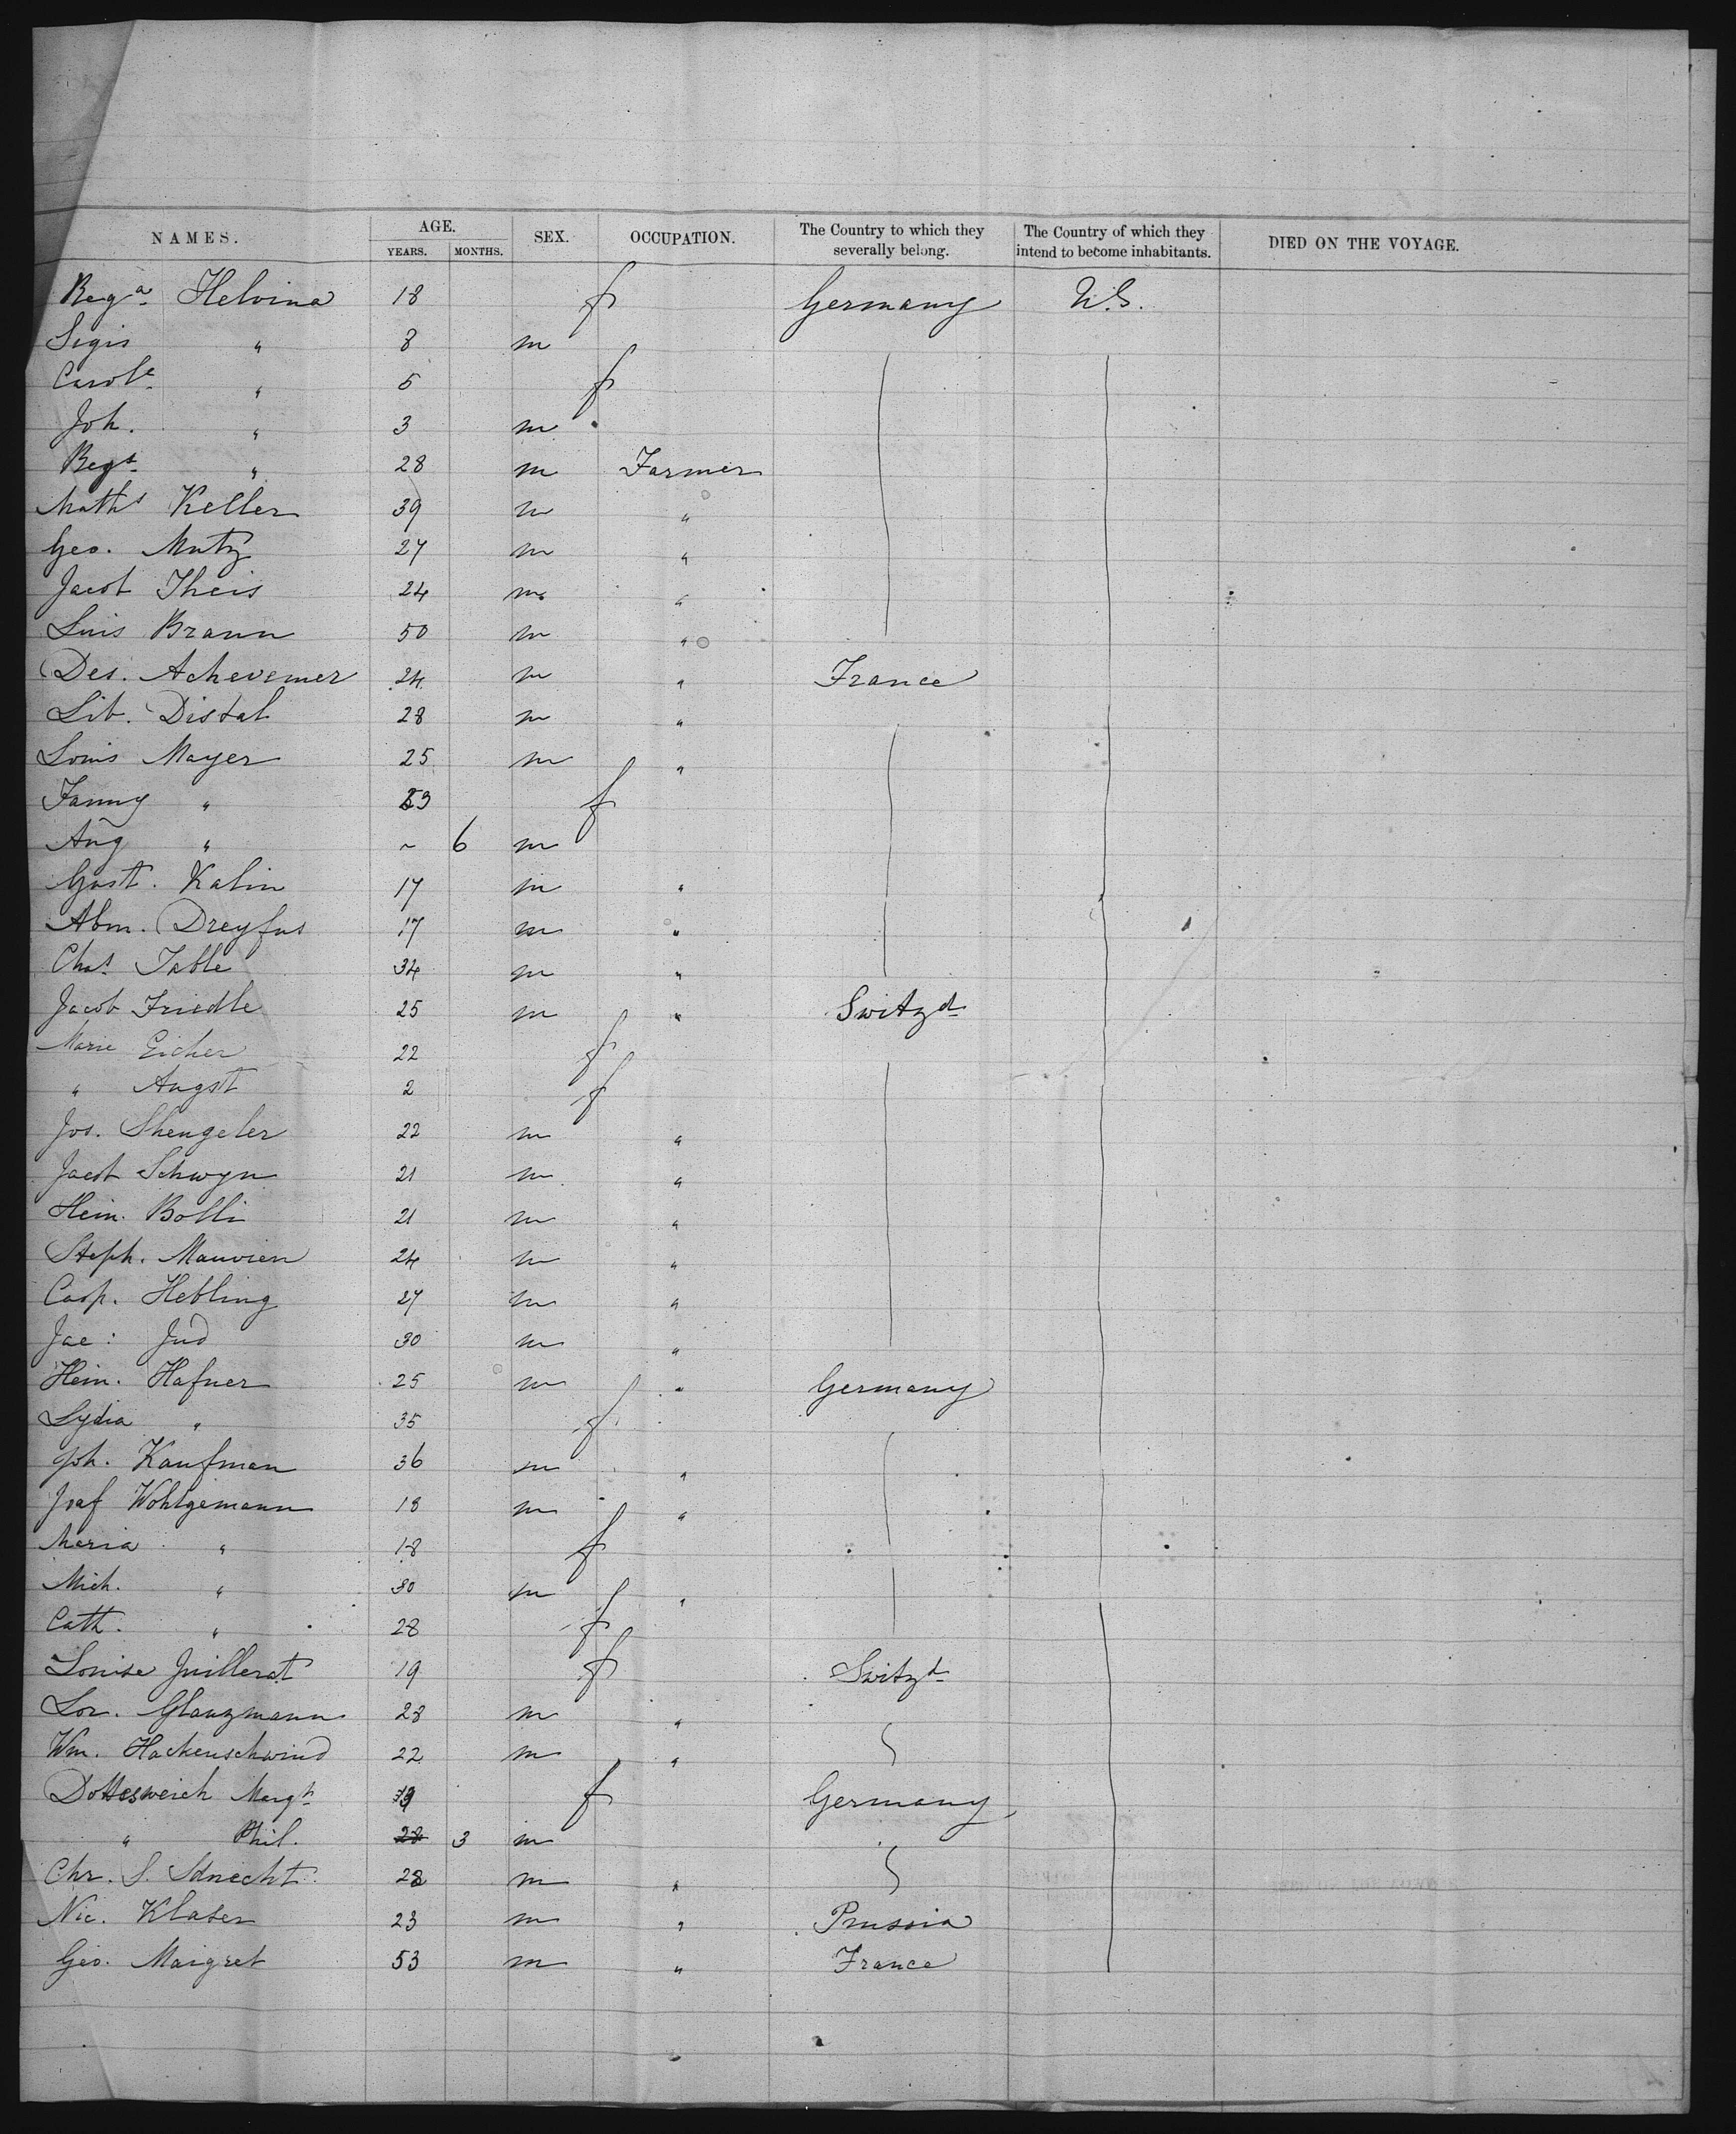 NAMES. AGE. SEX. OCCUPATION. The Country to which they severally belong. The Country of which they intend to become inhabitants. DIED ON THE VOYAGE.
YEARS. MONTHS.
Rega Helvina 18 f Germany U.S.
Sigis " 8 m
Carole " 5 f
Joh. " 3 m
Regt " 28 m Farmer
Maths Keller 39 m "
Geo. Mutz 27 m "
Jacob Theis 24 m "
Luis Braun 50 m "
Des. Achevemer 24 m " France
Lib. Distal 28 m "
Louis Mayer 25 m "
Fanny " 23 f
Aug " ~ 6 m
Gust. Kalin 17 m "
Abm. Dreyfus 17 m "
Chas. Table 34 m "
Jacob Friedle 25 m " Switzd
Marie Eicher 22 f
" Angst 2 f
Jos. Shengeler 22 m "
Jacob Schwyn 21 m "
Hein. Bolli 21 m "
Steph. Mauvien 24 m "
Casp. Hebling 27 m "
Jac: Jud 30 m "
Hein. Hafner 25 m " Germany
Lydia " 35 f
Joh. Kaufman 36 m "
Josf Wohlgemann 18 m "
Maria " 18 f
Mich. " 30 m "
Cath. " 28 f
Louise Juillerat 19 f Switzd
Lor. Glanzmann 28 m "
Wm. Hackenschwind 22 m "
Dottesweich Margt f Germany
" Phil. 28 3 m
Chr. S. 28 m "
Nic. Klaser 23 m " Prussia
Geo. Maigret 53 m " France